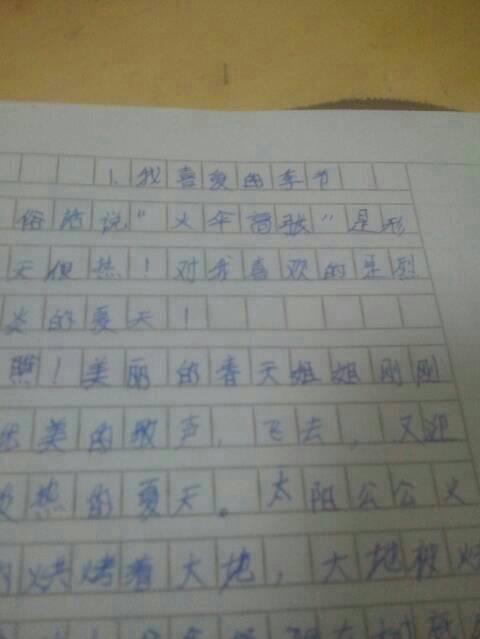 1.我喜爱的季节
俗话说"火伞高张"是形
天很热！对我喜欢的是烈
炎的夏天！
瞧！美丽的春天姐姐刚刚
美的歌声，飞去，又迎
热的夏天。太阳公公火
烘烤着大地，大地被烤